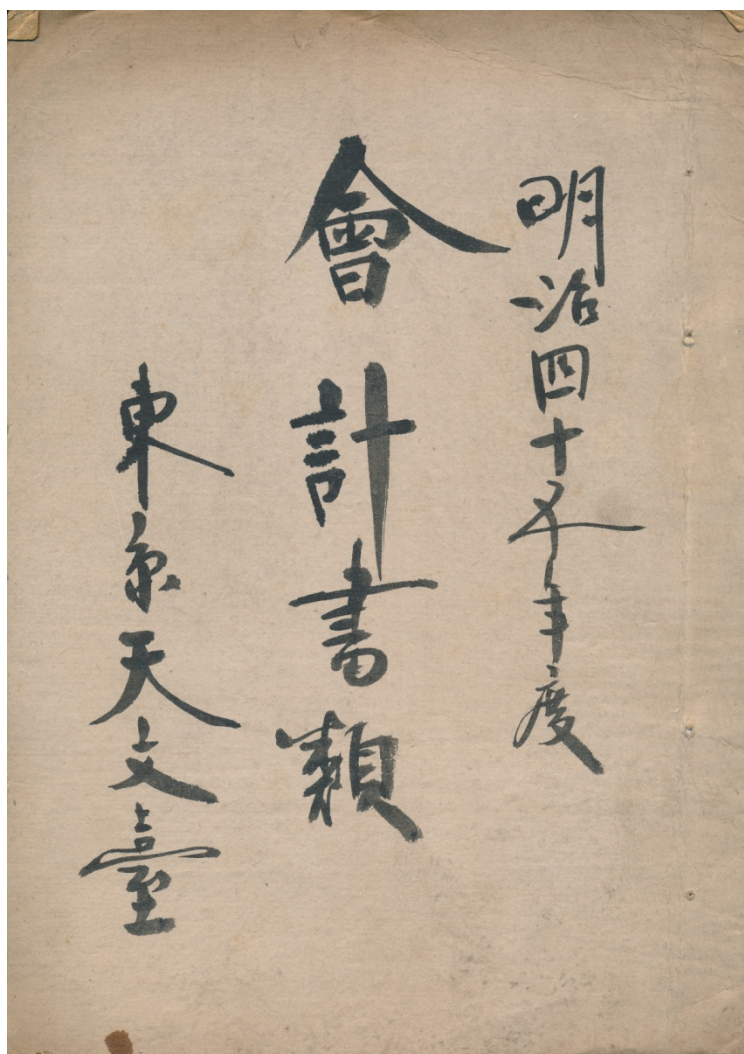 明治四十五年度
會計書類
東京天文臺